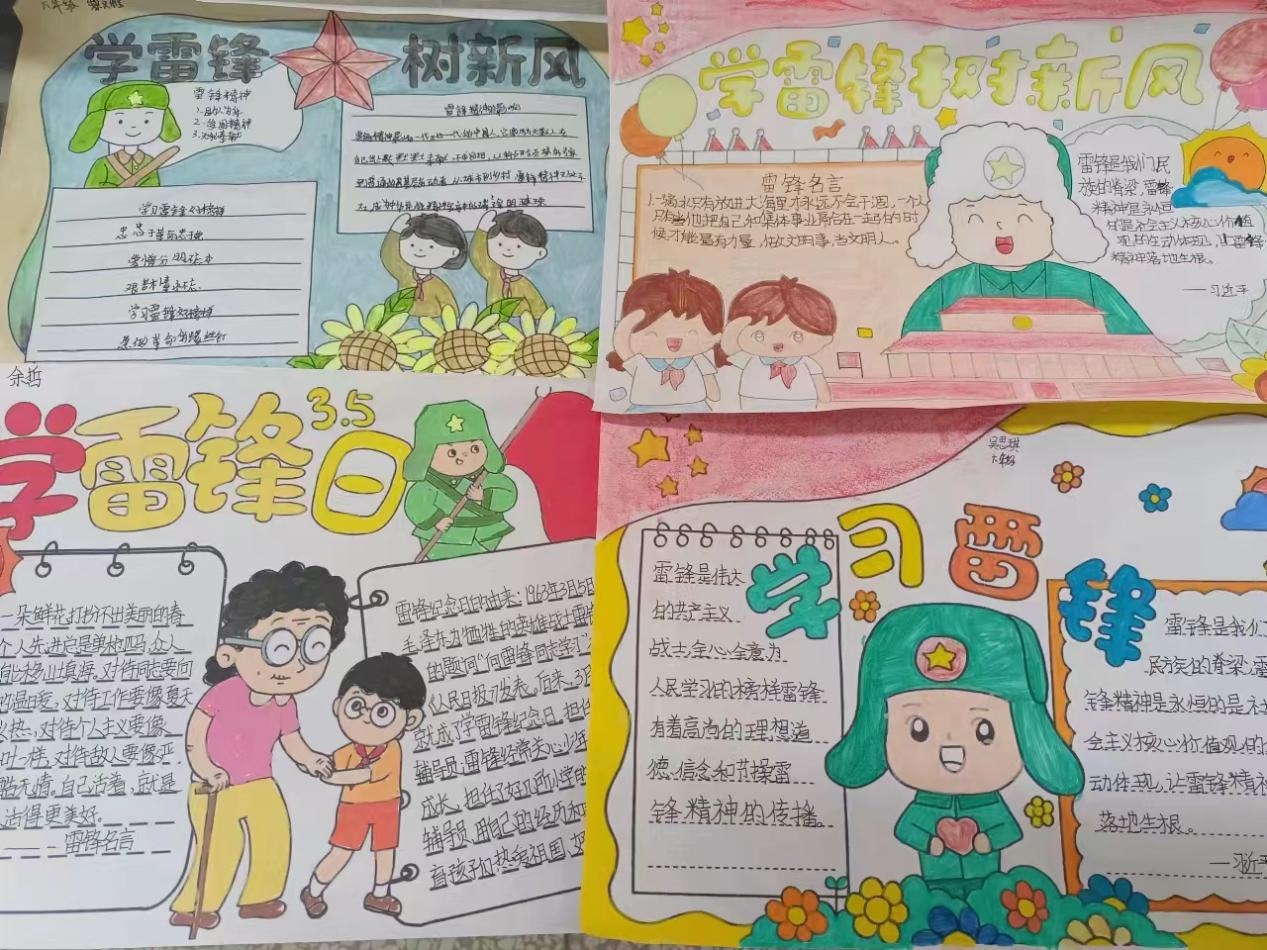 六年级
学雷锋 树新风
雷锋精神
雷锋精神的影响
学习雷锋好榜样
忠于革命忠于党
爱憎分明不忘本
学习雷锋好榜样
学雷锋树新风
雷锋名言
1.一滴水只有放进大海里才永远不会干涸,一个人
只有当他把自己和集体事业融合在一起的时
候才能最有力量,做文明事,当文明人。
雷锋是我们民
族的脊梁,雷锋
精神是永恒
的是社会主义核心价值
观的生动体现,让雷锋
精神落地生根。
——习近平
余哲
学雷锋日
3.5
一朵鲜花打扮不出美丽的春
个人先进总是单枪匹马,众人
能移山填海。对待同志要向
的温暖。对待工作要像夏天
火热,对待个人主义要像
叶一样,对待敌人要像严
酷无情。自己活着,就是
活得更美好。
——雷锋名言
雷锋纪念日的由来:1963年3月5日
毛泽东为牺牲的英雄战士雷锋
的题词“向雷锋同志学习”
《人民日报》发表。后来,3月
就成了学雷锋纪念日,担任
辅导员:雷锋经常关心少年
成长,担任了好几所小学的
辅导员,用自己的经历和
育孩子们热爱祖国,
吴思琪
六年级
学习雷锋
雷锋是伟大
的共产主义
战士,全心全意为
人民学习的榜样雷锋
有着高尚的理想道
德、信念和节操雷
锋精神的传播。
雷锋是我们
民族的脊梁,雷
锋精神是永恒的是社
会主义核心价值观的生
动体现,让雷锋精神
落地生根。
—习近平